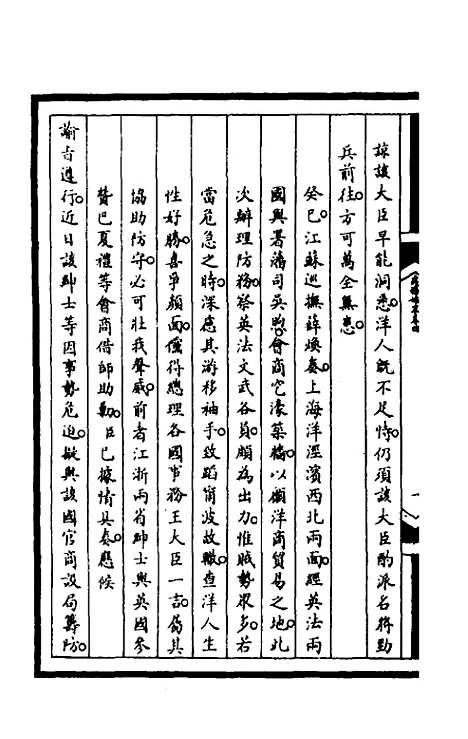 諒該大臣早能洞悉。洋人既不足恃。仍須該大臣酌派名將勁
兵前往。方可萬全無患。
癸巳。江蘇巡撫薛煥奏。上海洋涇濱西北兩面。經英法兩
國與署藩司吳煦。會商。定濠築牆。以顧洋商貿易之地。此
次辦理防務。察英法文武各員。頗為出力。惟賊勢眾多。若
當危急之時。深慮其游移袖手。致蹈甯波故轍。查洋人生
性好勝。喜爭顏面。僅得總理各國事務王大臣一言。屬其
協助防守。必可壯我聲威。前者江浙兩省紳士與英國參
贊巴夏禮等會商借師助勦。臣已據情具奏。應候
諭旨遵行。近日該紳士等因事勢危迫。欲與該國官商設局籌防。